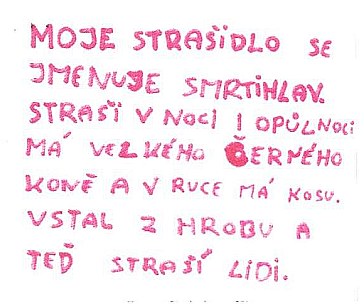 MOJE STRAŠIDLO SE
JMENUJE SMRTIHLAV.
STRAŠÍ V NOCI I OPŮLNOCI
MÁ VELKÉHO ČERNÉHO
KONĚ A V RUCE MÁ KOSU.
VSTAL Z HROBU A
TEĎ STRAŠÍ LIDI.